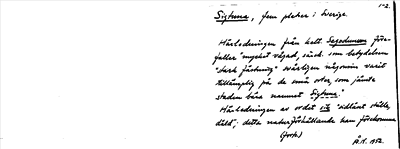 1-2.
Sigtuna, fem platser i Sverige.
Härledningen från kelt. Segodunum före-
faller mycket vågad, särsk. som betydelsen
"stark fästning" näppeligen någonsin varit
tillämplig på de små orter, som jämte
staden bära namnet Sigtuna."
Härledningen av ordet sik "sidlänt ställe,
däld"; detta naturförhållande kan förekomma
(forts)
1952.